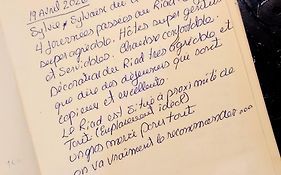 19 Avril 2026
Sylvie & Sylvain du
4 journées passées au Riad
super agréable. Hôtes super gentils
et serviables. Chambre confortable.
Décoration du Riad très agréable et
que dire des déjeuners qui sont
copieux et excellents.
Le Riad est situé à proximité de
tout (emplacement idéal)
un gros merci pour tout
on va vraiment le recommander ...